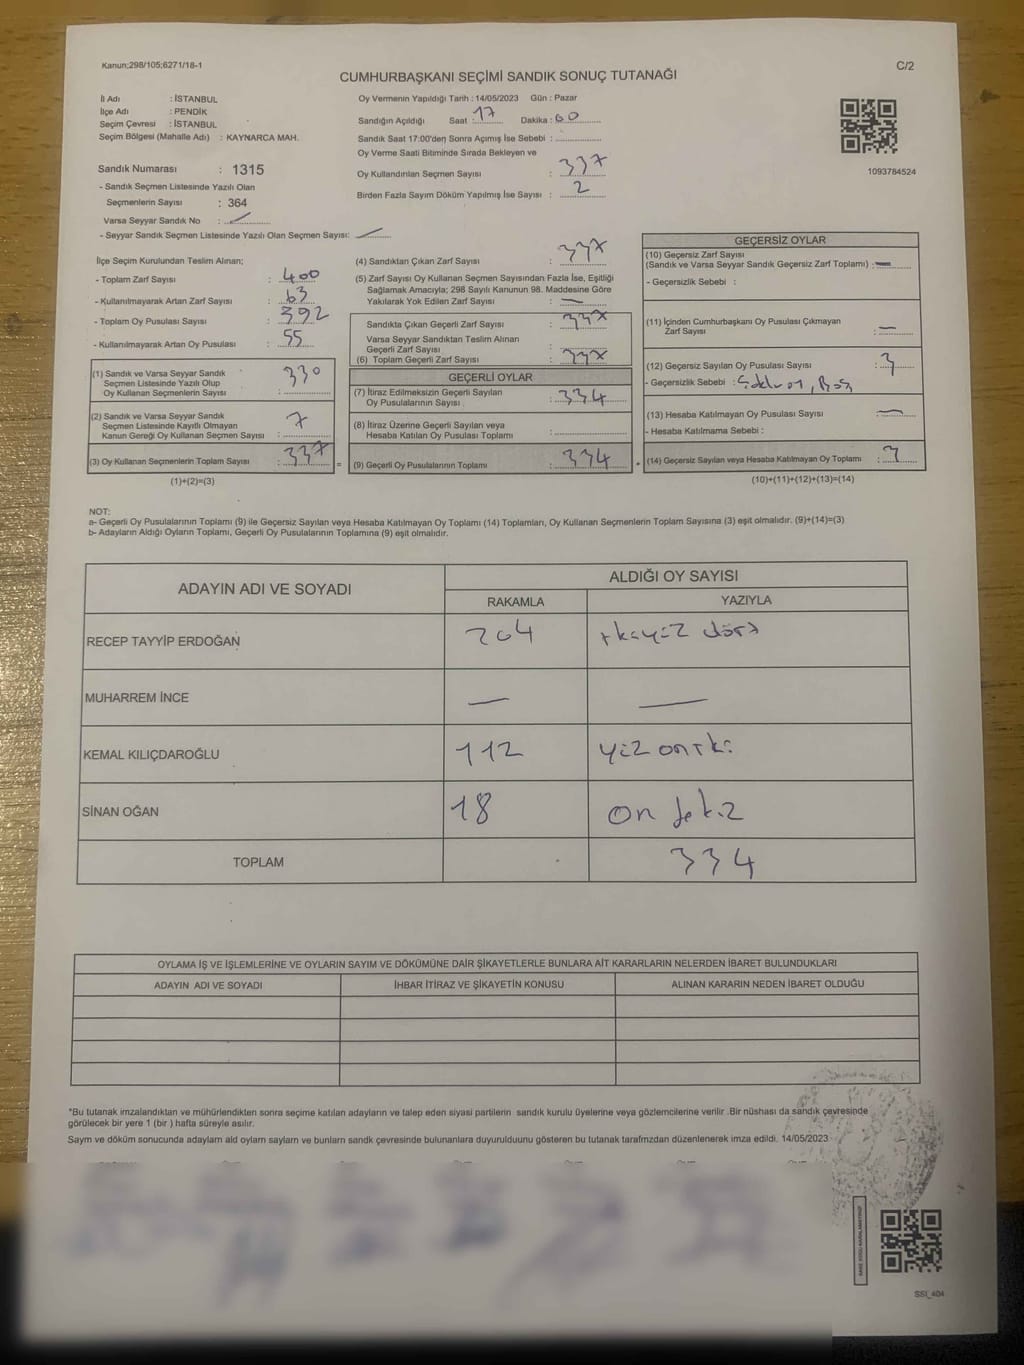 Kanun;298/105;6271/18-1
C/2
CUMHURBAŞKANI SEÇİMİ SANDIK SONUÇ TUTANAĞI
İl Adı : İSTANBUL
İlçe Adı : PENDİK
Seçim Çevresi : İSTANBUL
Seçim Bölgesi (Mahalle Adı) : KAYNARCA MAH.
Sandık Numarası : 1315
- Sandık Seçmen Listesinde Yazılı Olan
Seçmenlerin Sayısı : 364
Varsa Seyyar Sandık No :
- Seyyar Sandık Seçmen Listesinde Yazılı Olan Seçmen Sayısı:
Oy Vermenin Yapıldığı Tarih : 14/05/2023 Gün : Pazar
Sandığın Açıldığı Saat : 17 Dakika : 00
Sandık Saat 17:00'den Sonra Açımış İse Sebebi :
Oy Verme Saati Bitiminde Sırada Bekleyen ve
Oy Kullandırılan Seçmen Sayısı : 337
Birden Fazla Sayım Döküm Yapılmış İse Sayısı : 2
1093784524
İlçe Seçim Kurulundan Teslim Alınan;
- Toplam Zarf Sayısı : 400
- Kullanılmayarak Artan Zarf Sayısı : 63
- Toplam Oy Pusulası Sayısı : 392
- Kullanılmayarak Artan Oy Pusulası : 55
(1) Sandık ve Varsa Seyyar Sandık
Seçmen Listesinde Yazılı Olup
Oy Kullanan Seçmenlerin Sayısı : 330
(2) Sandık ve Varsa Seyyar Sandık
Seçmen Listesinde Kayıtlı Olmayan
Kanun Gereği Oy Kullanan Seçmen Sayısı : 7
(3) Oy Kullanan Seçmenlerin Toplam Sayısı : 337
(1)+(2)=(3)
(4) Sandıktan Çıkan Zarf Sayısı : 337
(5) Zarf Sayısı Oy Kullanan Seçmen Sayısından Fazla İse, Eşitliği
Sağlamak Amacıyla; 298 Sayılı Kanunun 98. Maddesine Göre
Yakılarak Yok Edilen Zarf Sayısı : —
Sandıkta Çıkan Geçerli Zarf Sayısı : 337
Varsa Seyyar Sandıktan Teslim Alınan
Geçerli Zarf Sayısı
(6) Toplam Geçerli Zarf Sayısı : 337
GEÇERLİ OYLAR
(7) İtiraz Edilmeksizin Geçerli Sayılan
Oy Pusulalarının Sayısı : 334
(8) İtiraz Üzerine Geçerli Sayılan veya
Hesaba Katılan Oy Pusulası Toplamı :
= (9) Geçerli Oy Pusulalarının Toplamı : 334
GEÇERSİZ OYLAR
(10) Geçersiz Zarf Sayısı
(Sandık ve Varsa Seyyar Sandık Geçersiz Zarf Toplamı) : —
- Geçersizlik Sebebi :
(11) İçinden Cumhurbaşkanı Oy Pusulası Çıkmayan
Zarf Sayısı : —
(12) Geçersiz Sayılan Oy Pusulası Sayısı : 3
- Geçersizlik Sebebi : , Boş
(13) Hesaba Katılmayan Oy Pusulası Sayısı —
- Hesaba Katılmama Sebebi :
+ (14) Geçersiz Sayılan veya Hesaba Katılmayan Oy Toplamı : 3
(10)+(11)+(12)+(13)=(14)
NOT:
a- Geçerli Oy Pusulalarının Toplamı (9) ile Geçersiz Sayılan veya Hesaba Katılmayan Oy Toplamı (14) Toplamları, Oy Kullanan Seçmenlerin Toplam Sayısına (3) eşit olmalıdır. (9)+(14)=(3)
b- Adayların Aldığı Oyların Toplamı, Geçerli Oy Pusulalarının Toplamına (9) eşit olmalıdır.
ADAYIN ADI VE SOYADI
ALDIĞI OY SAYISI
RAKAMLA YAZIYLA
RECEP TAYYİP ERDOĞAN 204 ikiyüz dört
MUHARREM İNCE — —
KEMAL KILIÇDAROĞLU 112 yüz oniki
SİNAN OĞAN 18 on sekiz
TOPLAM 334
OYLAMA İŞ VE İŞLEMLERİNE VE OYLARIN SAYIM VE DÖKÜMÜNE DAİR ŞİKAYETLERLE BUNLARA AİT KARARLARIN NELERDEN İBARET BULUNDUKLARI
ADAYIN ADI VE SOYADI İHBAR İTİRAZ VE ŞİKAYETİN KONUSU ALINAN KARARIN NEDEN İBARET OLDUĞU
*Bu tutanak imzalandıktan ve mühürlendikten sonra seçime katılan adayların ve talep eden siyasi partilerin sandık kurulu üyelerine veya gözlemcilerine verilir .Bir nüshası da sandık çevresinde
görülecek bir yere 1 (bir ) hafta süreyle asılır.
Sayım ve döküm sonucunda adaylam ald oylam saylam ve bunlarn sandk çevresinde bulunanlara duyurulduunu gösteren bu tutanak tarafmzdan düzenlenerek imza edildi. 14/05/2023
SSI_404